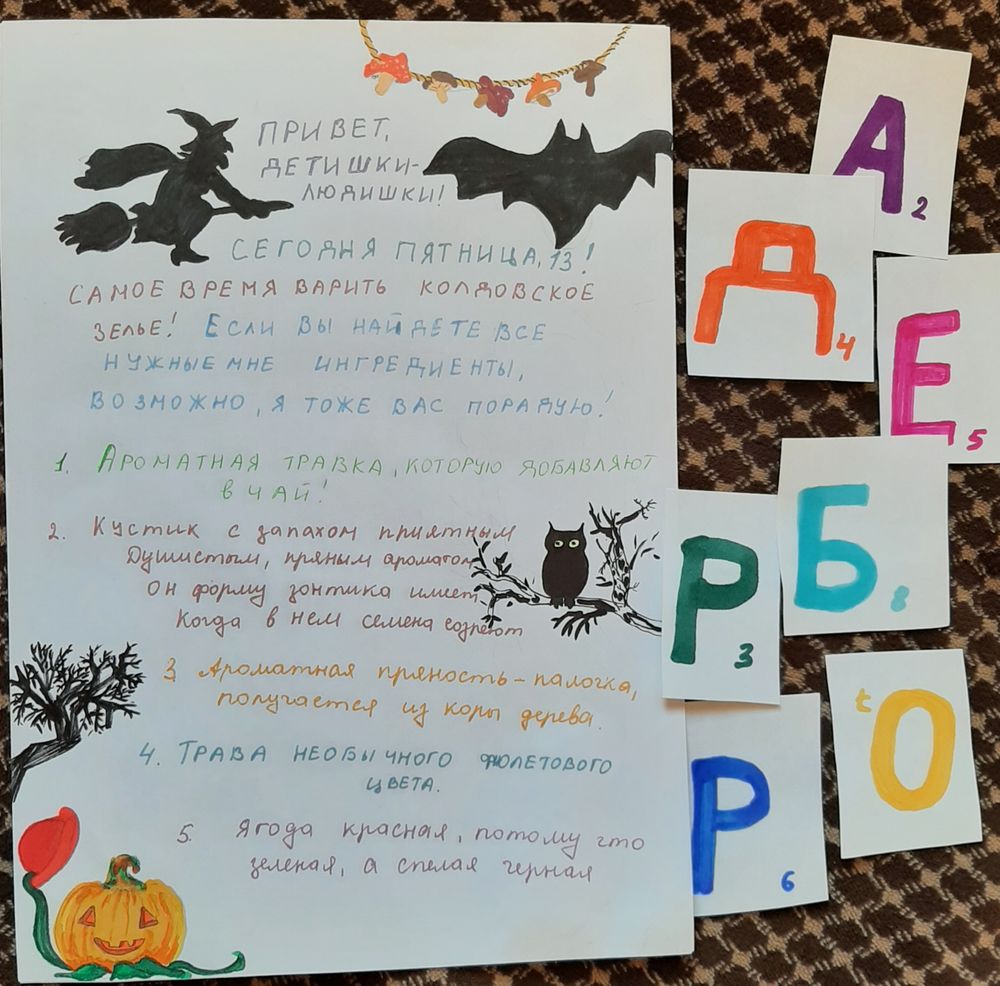 ПРИВЕТ,
ДЕТИШКИ-
ЛЮДИШКИ!
СЕГОДНЯ ПЯТНИЦА, 13!
САМОЕ ВРЕМЯ ВАРИТЬ КОЛДОВСКОЕ
ЗЕЛЬЕ! ЕСЛИ ВЫ НАЙДЕТЕ ВСЕ
НУЖНЫЕ МНЕ ИНГРЕДИЕНТЫ,
ВОЗМОЖНО, Я ТОЖЕ ВАС ПОРАДУЮ!
1. АРОМАТНАЯ ТРАВКА, КОТОРУЮ ДОБАВЛЯЮТ
В ЧАЙ!
2. Кустик с запахом приятным
Душистым, пряным ароматом
Он форму зонтика имеет
Когда в нем семена созреют
3 Ароматная пряность - палочка,
получается из коры дерева.
4. ТРАВА НЕОБЫЧНОГО ФИОЛЕТОВОГО
ЦВЕТА.
5. Ягода красная, потому что
зеленая, а спелая черная
А 2
Д 4
Е 5
Б 8
Р 3
О
Р 6